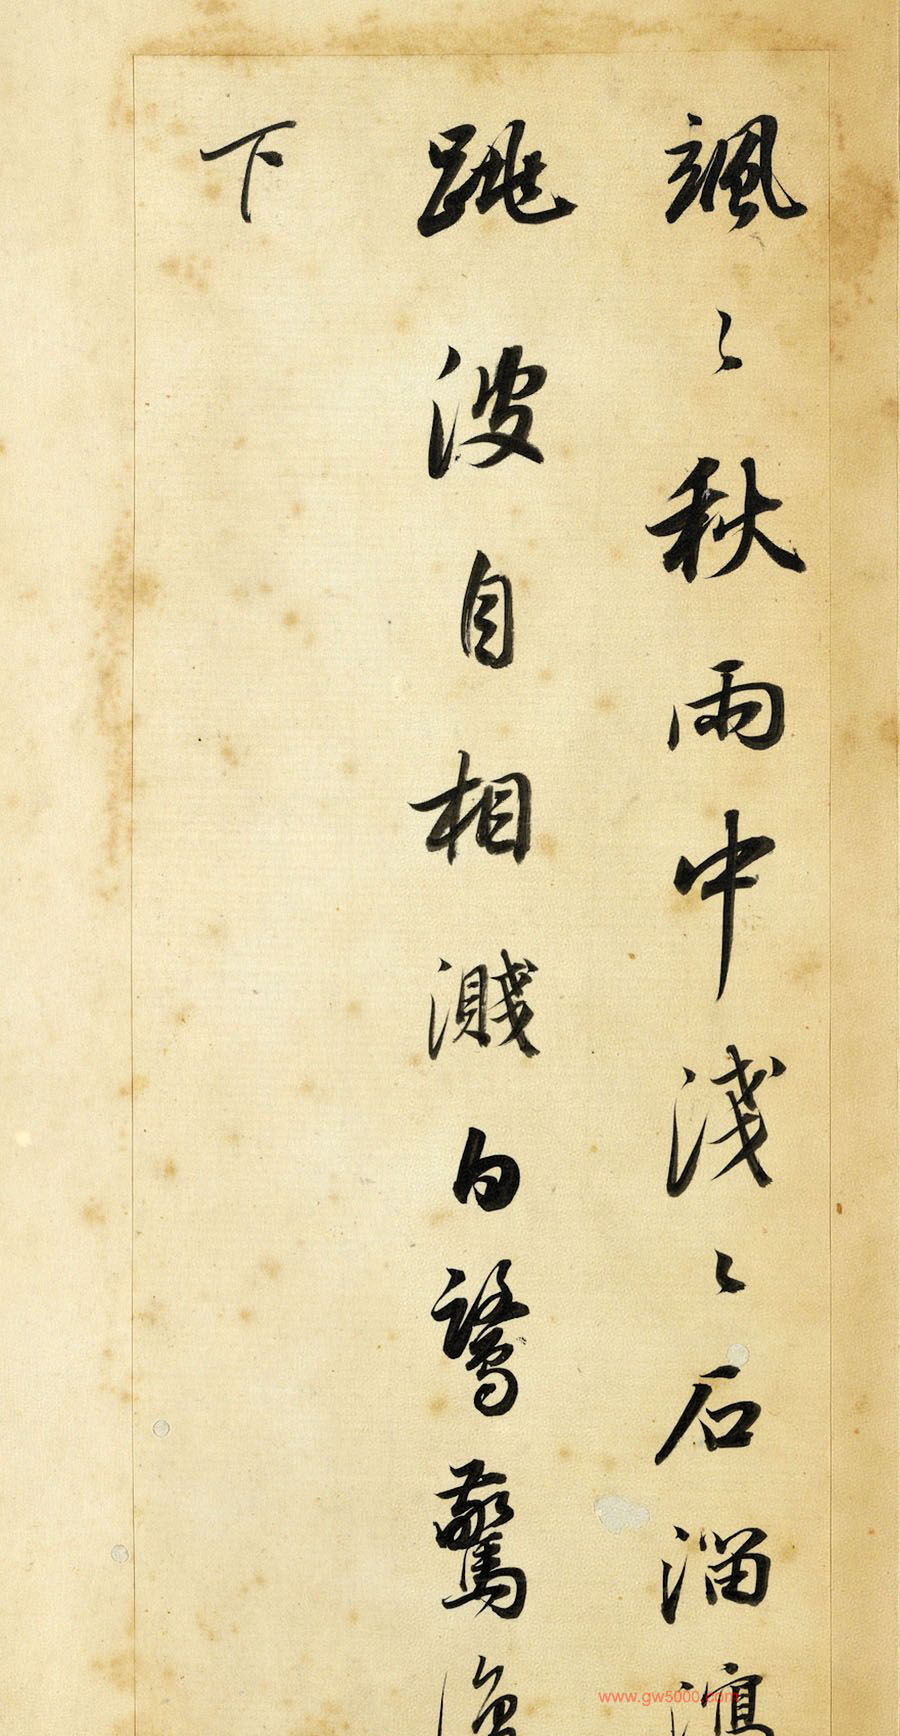 颯々秋雨中淺々石溜
跳波自相濺白鷺驚
下
www.gw5000.com